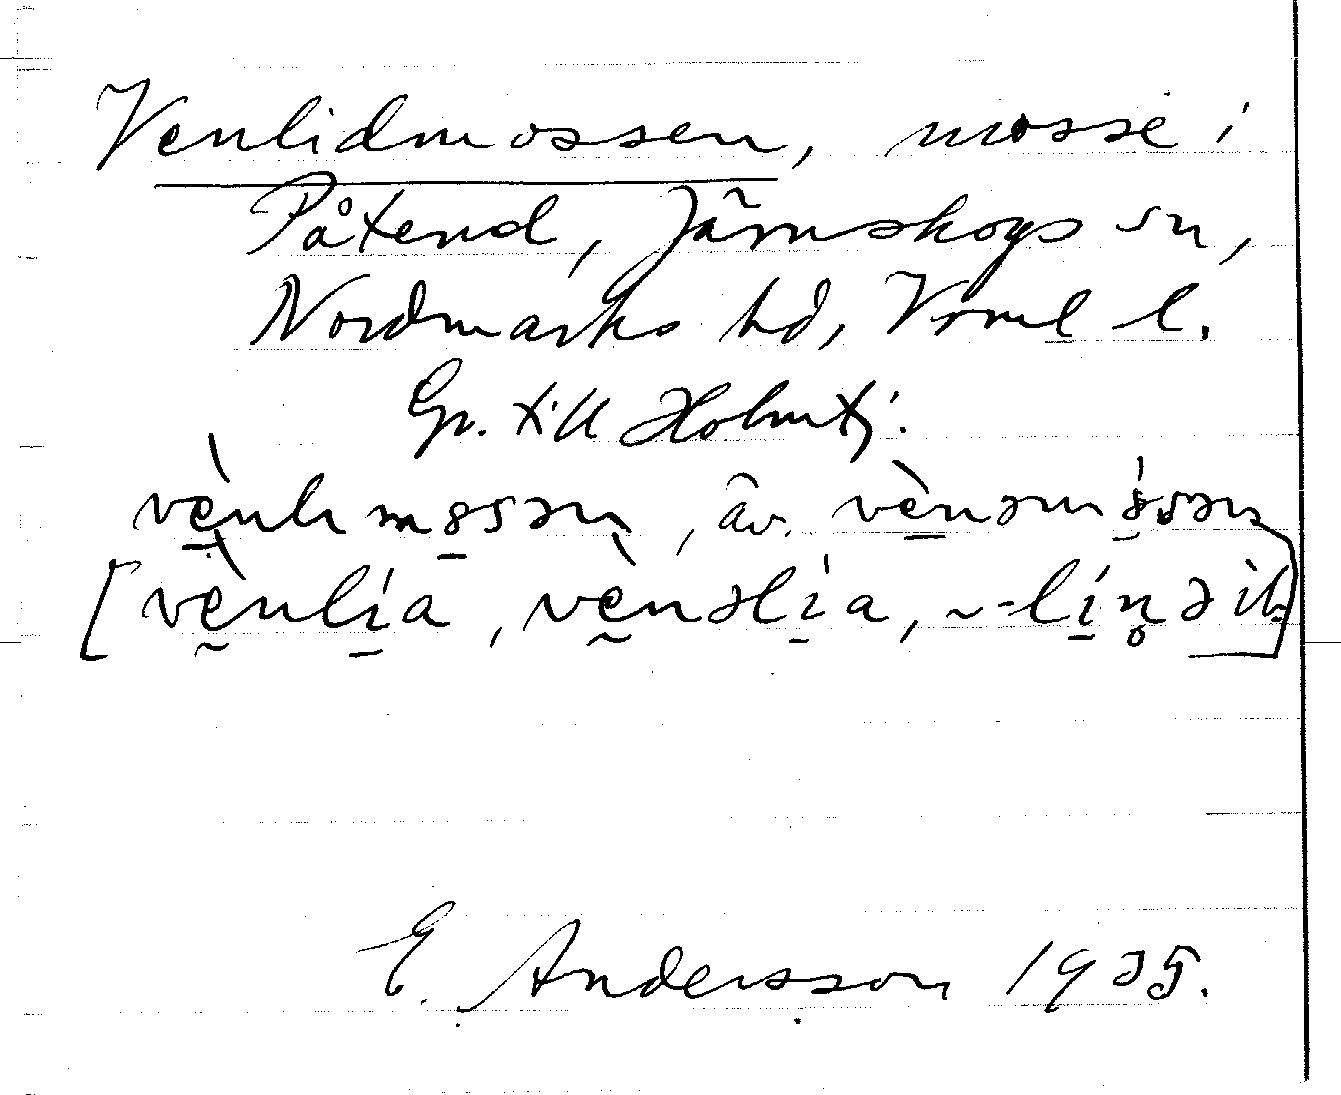 Venlidmossen, mosse i
Påtend, Järnskogs sn,
Nordmarks hd, Vrml l.
Gr. till Holmtj.
vènlımo̱ssən, äv. vènəmòssən
[vènlía, vènəlía, ~-líṇə
E. Andersson 1935.